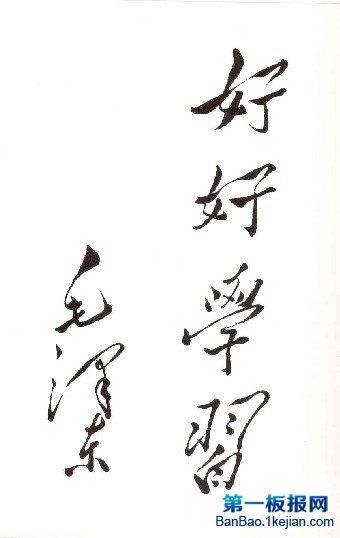 好好學習
毛澤东
第一板报网
BanBao.1kejian.com